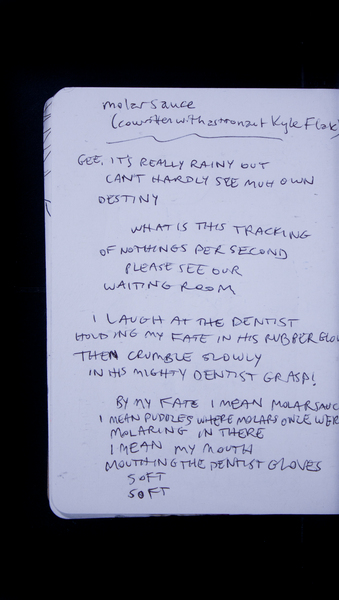 molar sauce
(cowritten with astronaut Kyle Flak)
GEE, IT'S REALLY RAINY OUT
CAN'T HARDLY SEE MUH OWN
DESTINY
WHAT IS THIS TRACKING
OF NOTHINGS PER SECOND
PLEASE SEE OUR
WAITING ROOM
I LAUGH AT THE DENTIST
HOLDING MY FATE IN HIS RUBBER GLOV
THEN CRUMBLE SLOWLY
IN HIS MIGHTY DENTIST GRASP!
BY MY FATE I MEAN MOLAR SAUC
I MEAN PUDDLES WHERE MOLARS ONCE WER
MOLARING IN THERE
I MEAN MY MOUTH
MOUTHING THE DENTIST GLOVES
SOFT
SOFT